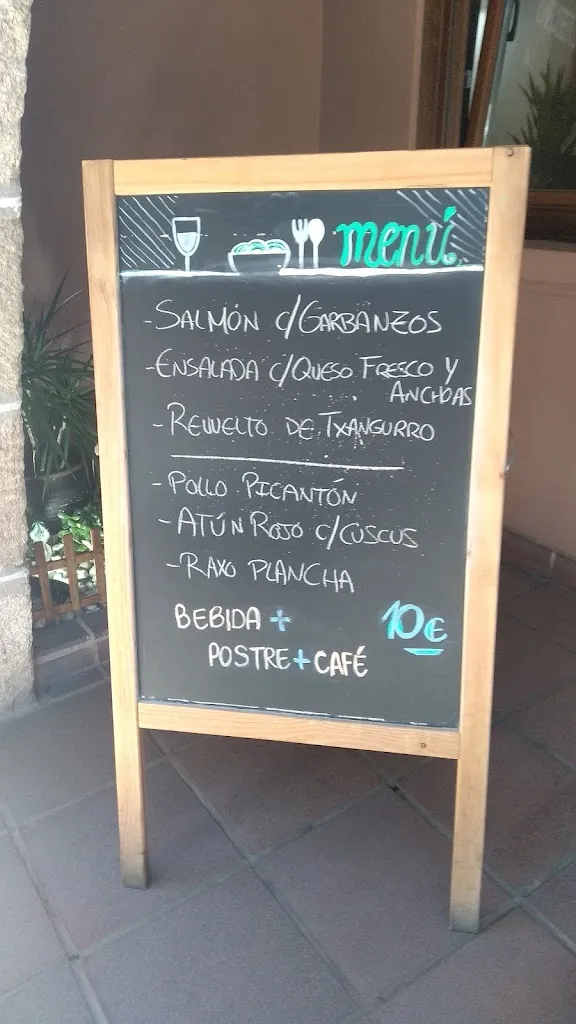 menú
-SALMÓN C/GARBANZOS
-ENSALADA C/QUESO FRESCO Y
ANCHOAS
-REVUELTO DE TXANGURRO
-POLLO PICANTÓN
-ATÚN ROJO C/CUSCUS
-RAXO PLANCHA
BEBIDA + 10€
POSTRE+CAFÉ